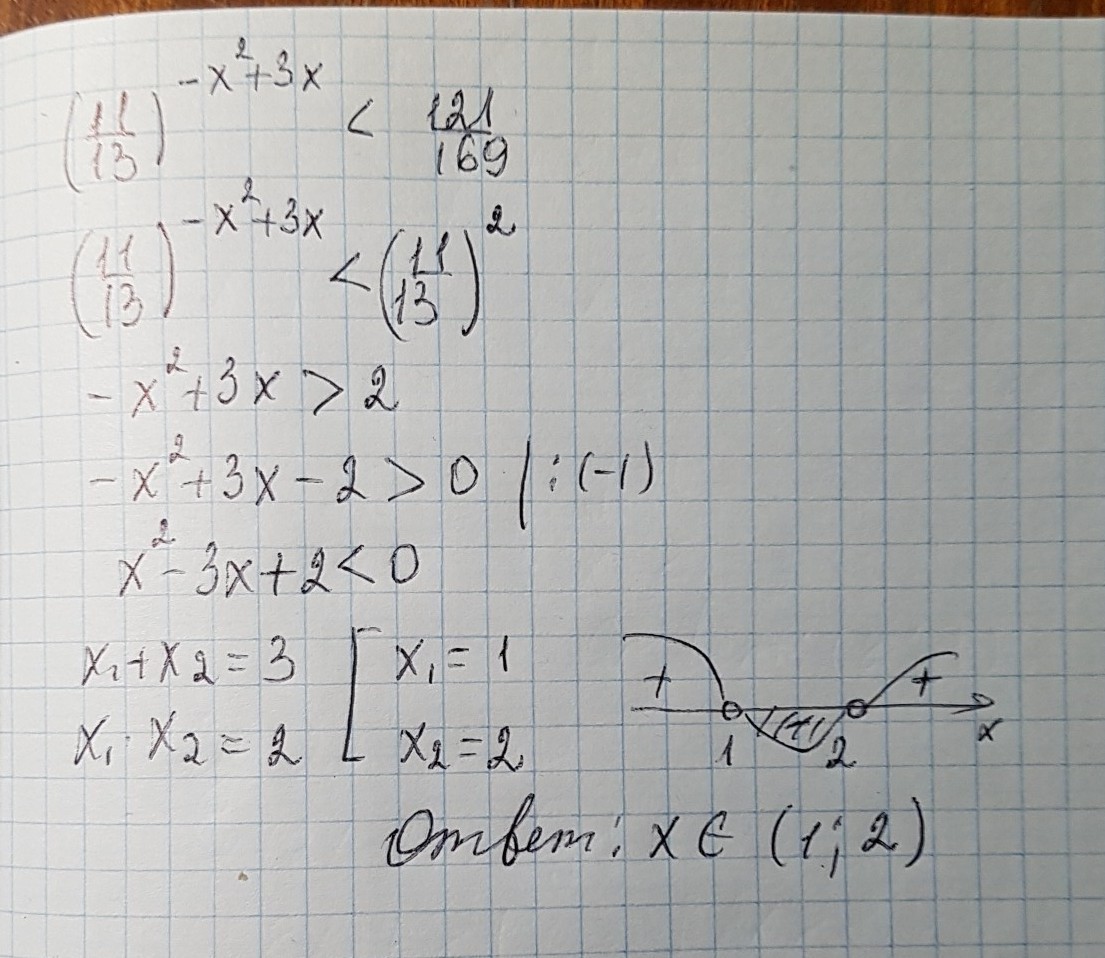 (11/13)^(-x²+3x) < 121/169
(11/13)^(-x²+3x) < (11/13)²
-x²+3x > 2
-x²+3x-2 > 0 | : (-1)
x²-3x+2 < 0
x₁+x₂ = 3 [ x₁ = 1
x₁·x₂ = 2 x₂ = 2
+ +
1 2 x
Ответ: x ∈ (1; 2)